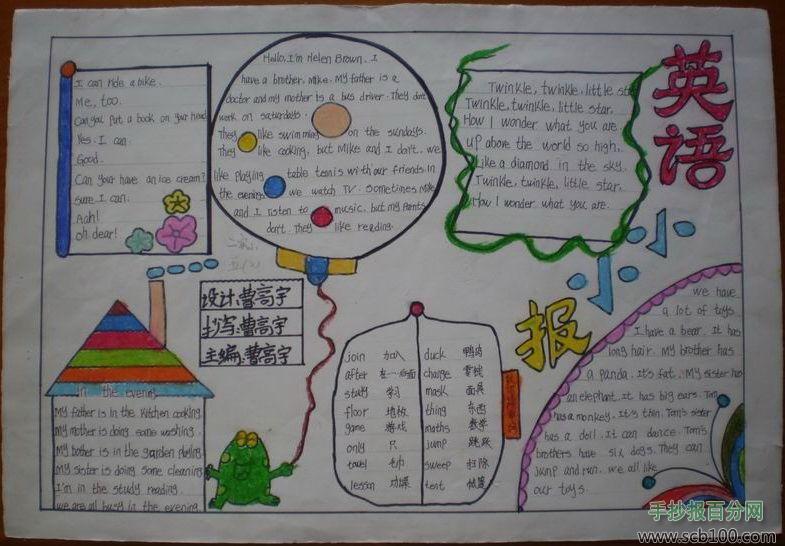 I can ride a bike.
Me, too.
Can you put a book on your head
Yes. I can.
Good.
Can your have an ice cream?
sure I can.
Aah!
oh dear!
Hello, I'm Helen Brown. I
have a brother, Mike. My father is a
doctor and my mother is a bus driver. They don't
work on saturdays.
They like swimming on the sundays.
They like cooking, but Mike and I don't. We
like playing table tennis with our friends. In
the evenings we watch TV. Sometimes Mike
and I listen to music, but my parents
don't. They like reading.
Twinkle, twinkle, little star
Twinkle, twinkle, little star.
How I wonder what you are.
up above the world so high,
Like a diamond in the sky.
Twinkle, twinkle, little star.
How I wonder what you are.
英语
小小
报
设计:曹高宇
抄写:曹高宇
主编:曹高宇
In the evening
My father is in the kitchen cooking
My mother is doing some washing.
My bother is in the garden
My sister is doing some cleaning
I'm in the study reading.
we are all busy in the evening.
join 加入 duck
after change
study 学习 mask 面具
floor 地板 thing 东西
game 游戏 maths 数学
only 只 jump 跳跃
towel 毛巾 sweep 扫除
lesson 功课 test
we have
a lot of toys.
I have a bear. It has
long hair. My brother has
a panda. It's fat. My sister has
an elephant. It has big ears. Tom
has a monkey. It's thin. Tom's sister
has a doll. It can dance. Tom's
brothers have six dogs. They can
jump and run. we all like
our toys.
手抄报百分网
www.scb100.com